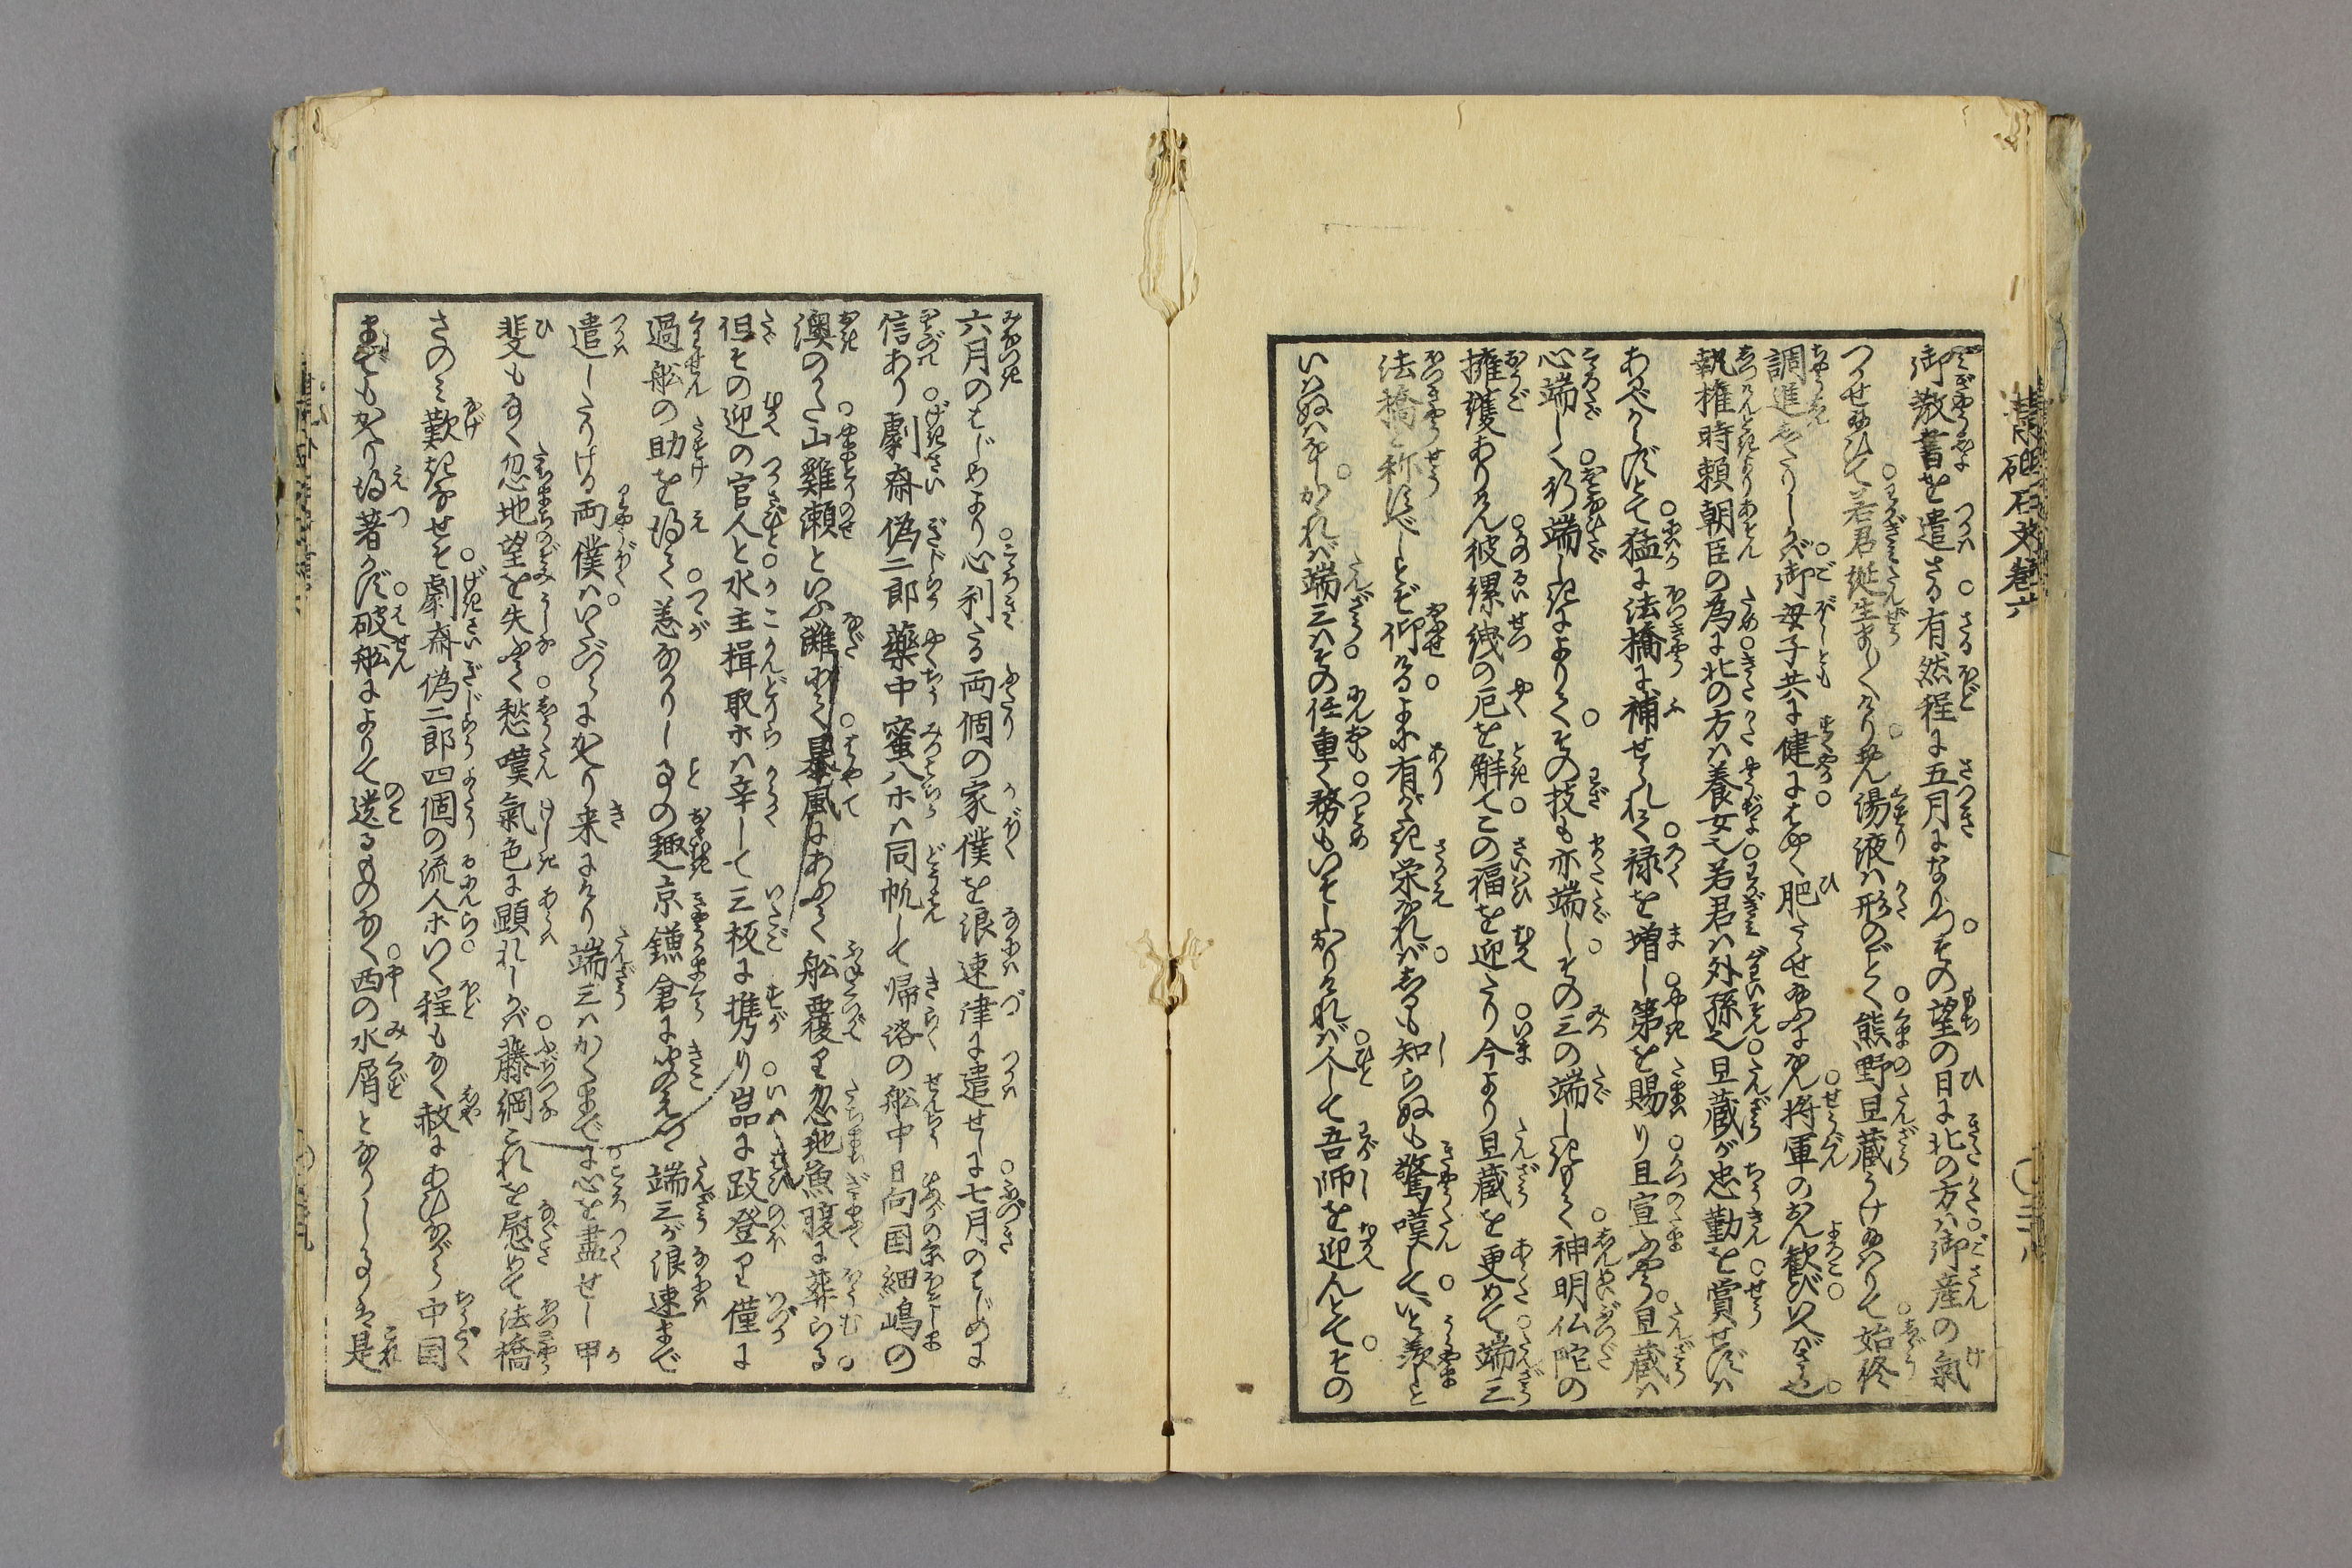 御教書を遣さる有然程に五月になりつその望の日に北の方は御産の氣
つかせ給ひて若君誕生ましくけり藥湯液は形のごとく熊野旦蔵うけ給はりて始終
調進したりしかば御母子共に健にはやく肥たせ給ふになん将軍のおん歓びいへばさら也
執権時頼朝臣の為に北の方は養女也若君は外孫也旦蔵が忠勤を賞せずは
あるべからずとて猛に法橋に補せられて禄を増し第を賜り且宣ふやう旦蔵は
心端しく形端しきによりてその技も亦端しその三の端しきもて神明仏陀の
擁護ありけん彼縲絏の厄を解てこの福を迎たり今より旦蔵を更めて端三
法橋と称すべしとぞ仰ける上に有がたき栄なればしるも知らぬも驚嘆していと羨しと
いはぬはなしかれば端三はその任重く務もいそしかりければ人して吾師を迎んとてその
六月のはじめより心利たる両個の家僕を浪速津に遣せしに七月のはじめに
信あり劇斎偽二郎藥中蜜八ホは同帆して帰洛の船中日向国細嶋の
澳のかた山雞瀬といふ灘にて暴風にあふて船覆り忽地魚腹に葬らる
但その迎の官人と水主揖取ホは辛して三板に携り嵒に跂登り僅に
過船の助を得て恙なかりし事の趣京鎌倉に聞えつ端三が浪速まで
遣したりける両僕はいたづらにかへり来にけり端三はかくまでに心を盡せし甲
斐もなく忽地望を失ふて愁嘆氣色に顕れしかば藤綱これを慰めて法橋
さのみ歎きなせそ劇斎偽二郎四個の流人ホいく程もなく赦にあひながら中国
までもかへり得著かず破船によりて送るものなく西の水屑となりし事は是